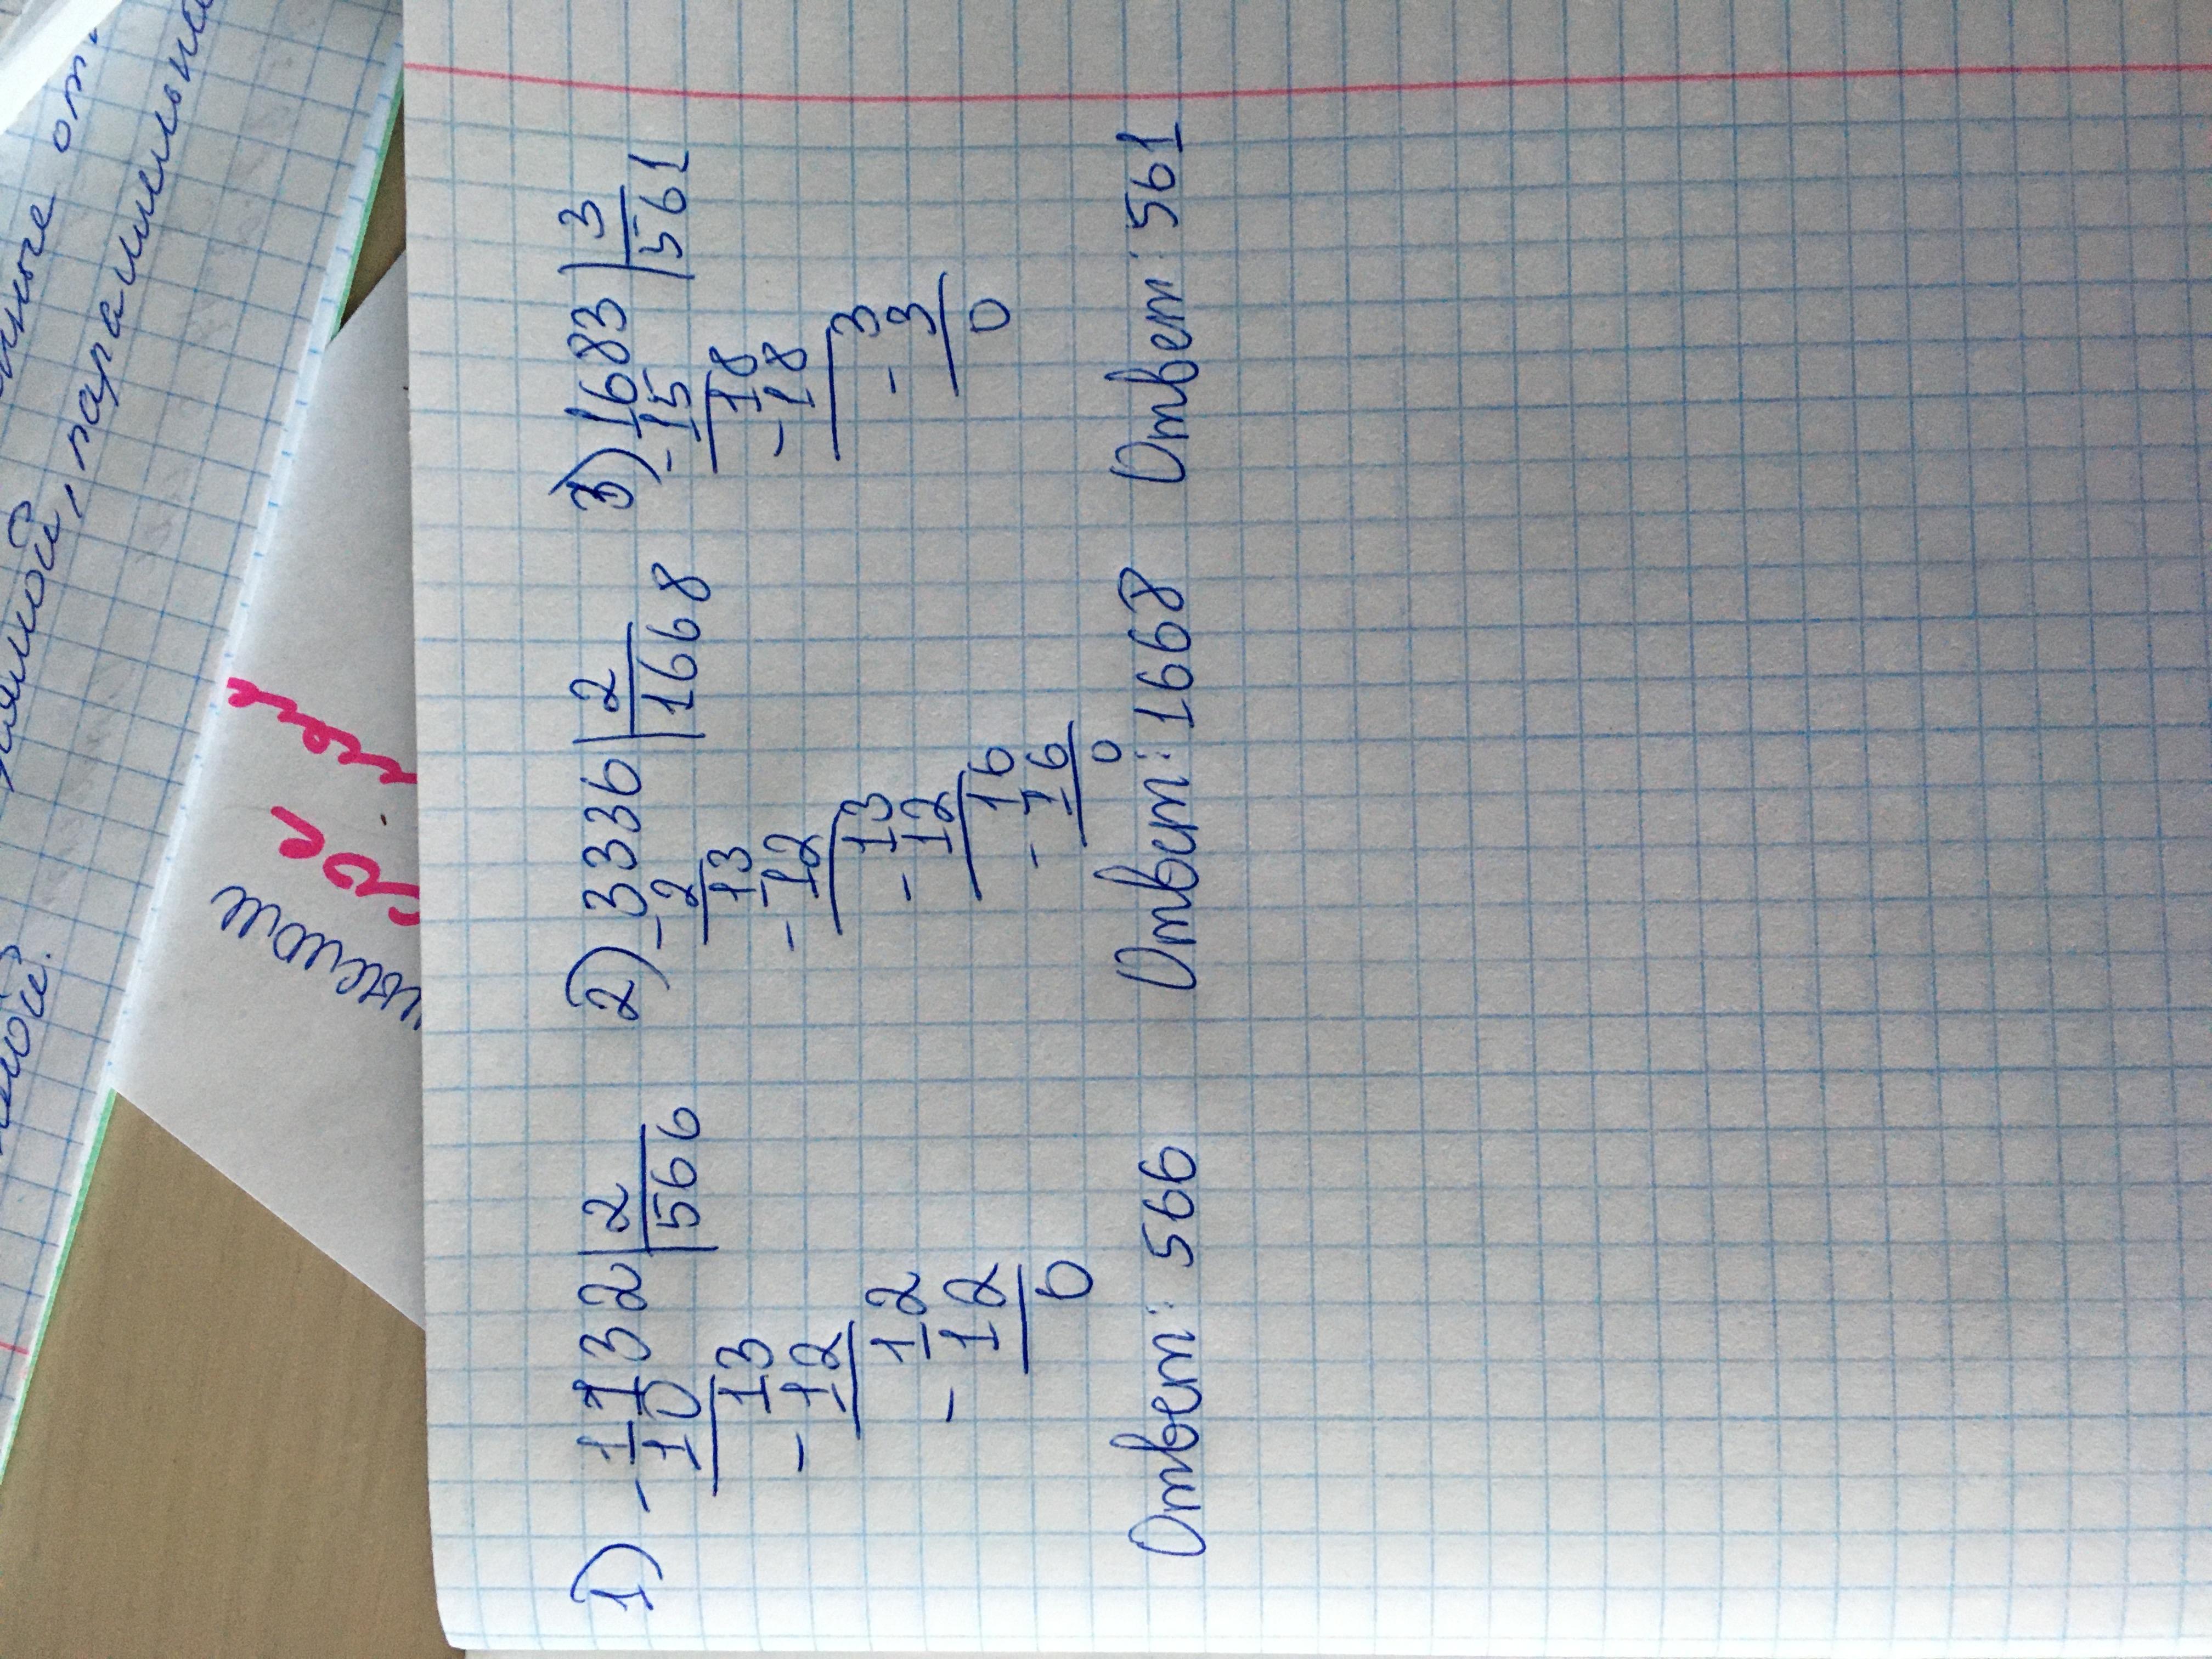 1) - 1132 | 2    2) - 3336 | 2    3) 1683 | 3
10 | 566    2 | 1668    - 15 | 561
13    13    18
- 12    - 12    - 18
12    13    3
- 12    - 12    - 3
0    16    0
- 16
0
Ответ: 566    Ответ: 1668    Ответ: 561
, параллельные